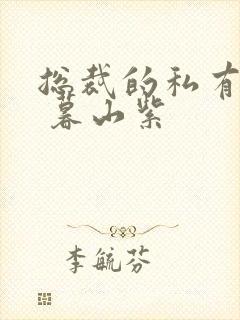 总裁的私有
暮山紫
李毓芬